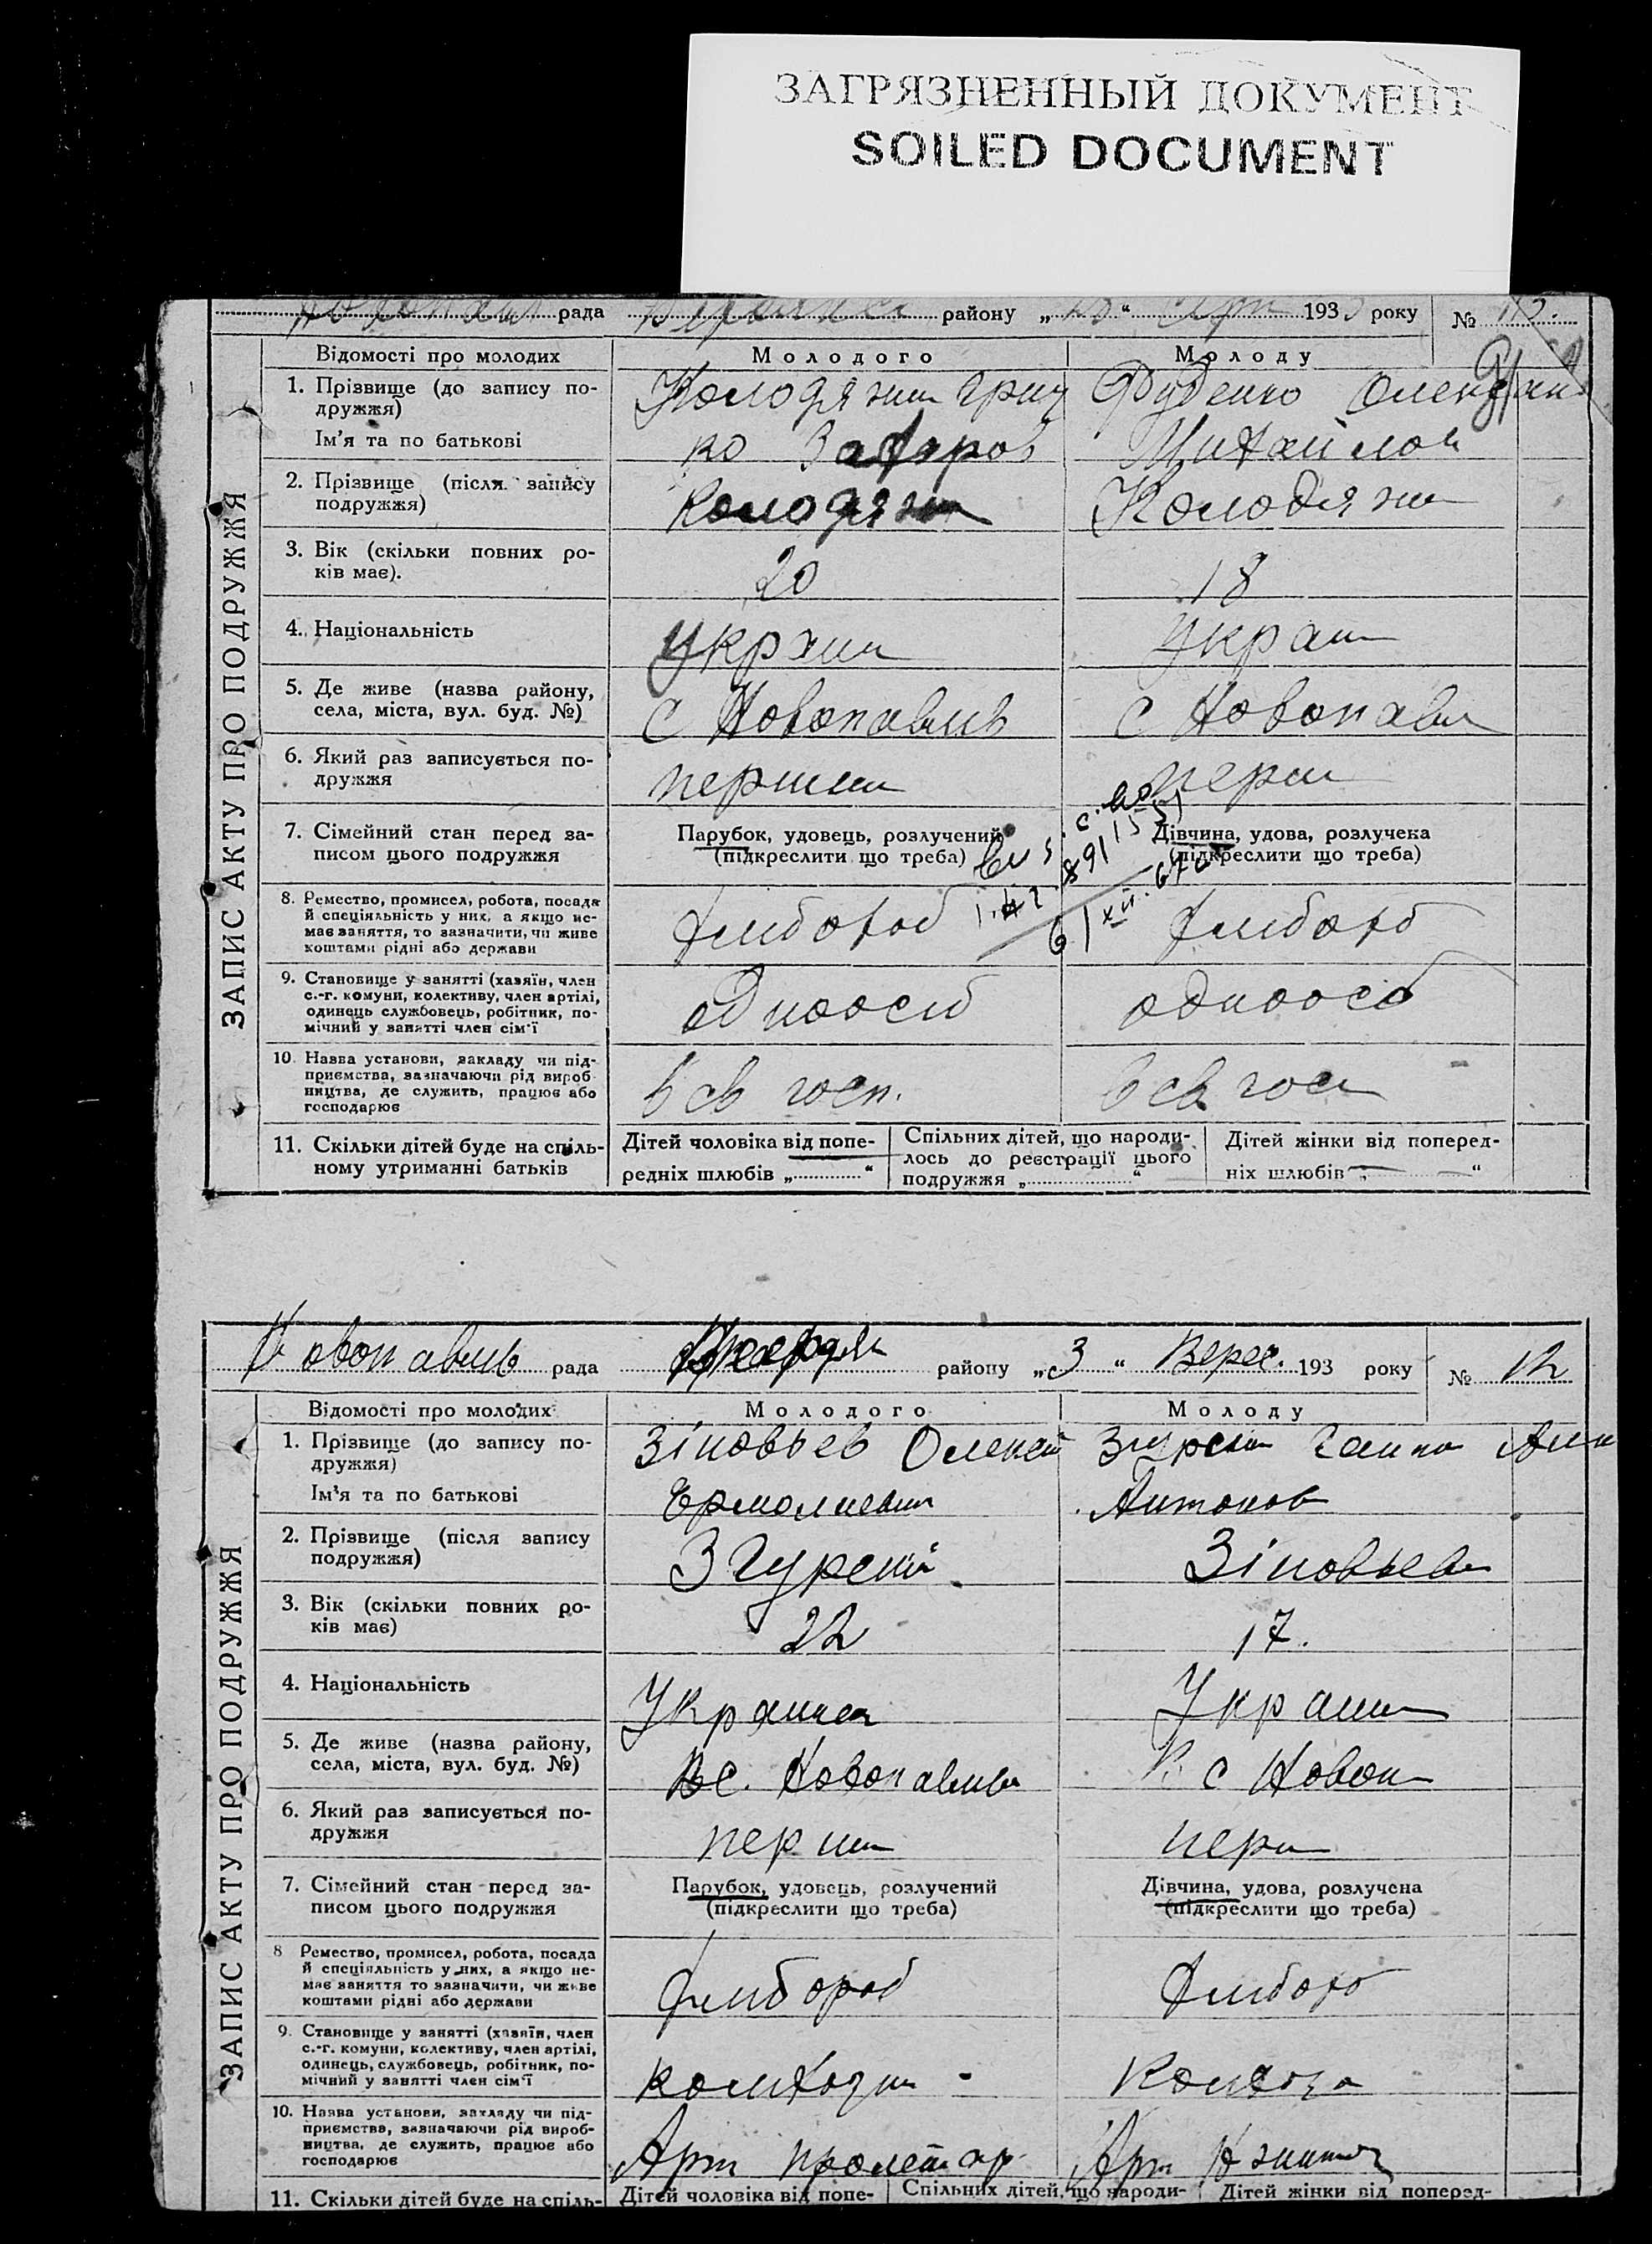 ЗАГРЯЗНЕННЫЙ ДОКУМЕНТ
SOILED DOCUMENT
рада району „ “ 193 року №
ЗАПИС АКТУ ПРО ПОДРУЖЖЯ
Відомості про молодих Молодого Молоду
1. Прізвище (до запису по-
дружжя)
Ім'я та по батькові
Колодяжн Фуденко
Михайлов
2. Прізвище (після запису
подружжя)
Колодяжн Колодяжн
3. Вік (скільки повних ро-
ків має).
20 18
4. Національність
5. Де живе (назва району,
села, міста, вул. буд. №)
с Новопавлів с Новопавл
6. Який раз записується по-
дружжя
7. Сімейний стан перед за-
писом цього подружжя
Парубок, удовець, розлучений
(підкреслити що треба)
Дівчина, удова, розлучека
(підкреслити що треба)
8. Ремество, промисел, робота, посада
й спеціяльність у них, а якщо не-
має заняття, то зазначити, чи живе
коштами рідні або держави
Хлібороб Хлібороб
9. Становище у занятті (хазяїн, член
с.-г. комуни, колективу, член артілі,
одинець службовець, робітник, по-
мічний у занятті член сім'ї
одноосіб одноосіб
10. Назва установи, закладу чи під-
приємства, зазначаючи рід вироб-
ництва, де служить, працює або
господарює
в св госп. в св госп
11. Скільки дітей буде на спіль-
ному утриманні батьків
Дітей чоловіка від попе-
редніх шлюбів „ “
Спільних дітей, що народи-
лось до реєстрації цього
подружжя „ “
Дітей жінки від поперед-
ніх шлюбів „ “
Новопавлів рада району „3“ Верес. 193 року № 12
ЗАПИС АКТУ ПРО ПОДРУЖЖЯ
Відомості про молодих Молодого Молоду
1. Прізвище (до запису по-
дружжя)
Ім'я та по батькові
Зіновьев Олексій Згурськ Ганна
Ермолиевич Антонов
2. Прізвище (після запису
подружжя)
Згурский Зіновьев
3. Вік (скільки повних ро-
ків має)
22 17.
4. Національність
5. Де живе (назва району,
села, міста, вул. буд. №)
В с. Новопавлів В с Новоп
6. Який раз записується по-
дружжя
перш перш
7. Сімейний стан перед за-
писом цього подружжя
Парубок, удовець, розлучений
(підкреслити що треба)
Дівчина, удова, розлучена
(підкреслити що треба)
8 Ремество, промисел, робота, посада
й спеціяльність у них, а якщо не-
має заняття то зазначити, чи живе
коштами рідні або держави
Хлібороб Хлібороб
9. Становище у занятті (хазяїн, член
с.-г. комуни, колективу, член артілі,
одинець, службовець, робітник, по-
мічний у занятті член сім'ї
10. Назва установи, закладу чи під-
приємства, зазначаючи рід вироб-
ництва, де служить, працює або
господарює
Арт пролетар Арт
11. Скільки дітей буде на спіль-
Дітей чоловіка від попе-
Спільних дітей, що народи-
Дітей жінки від поперед-